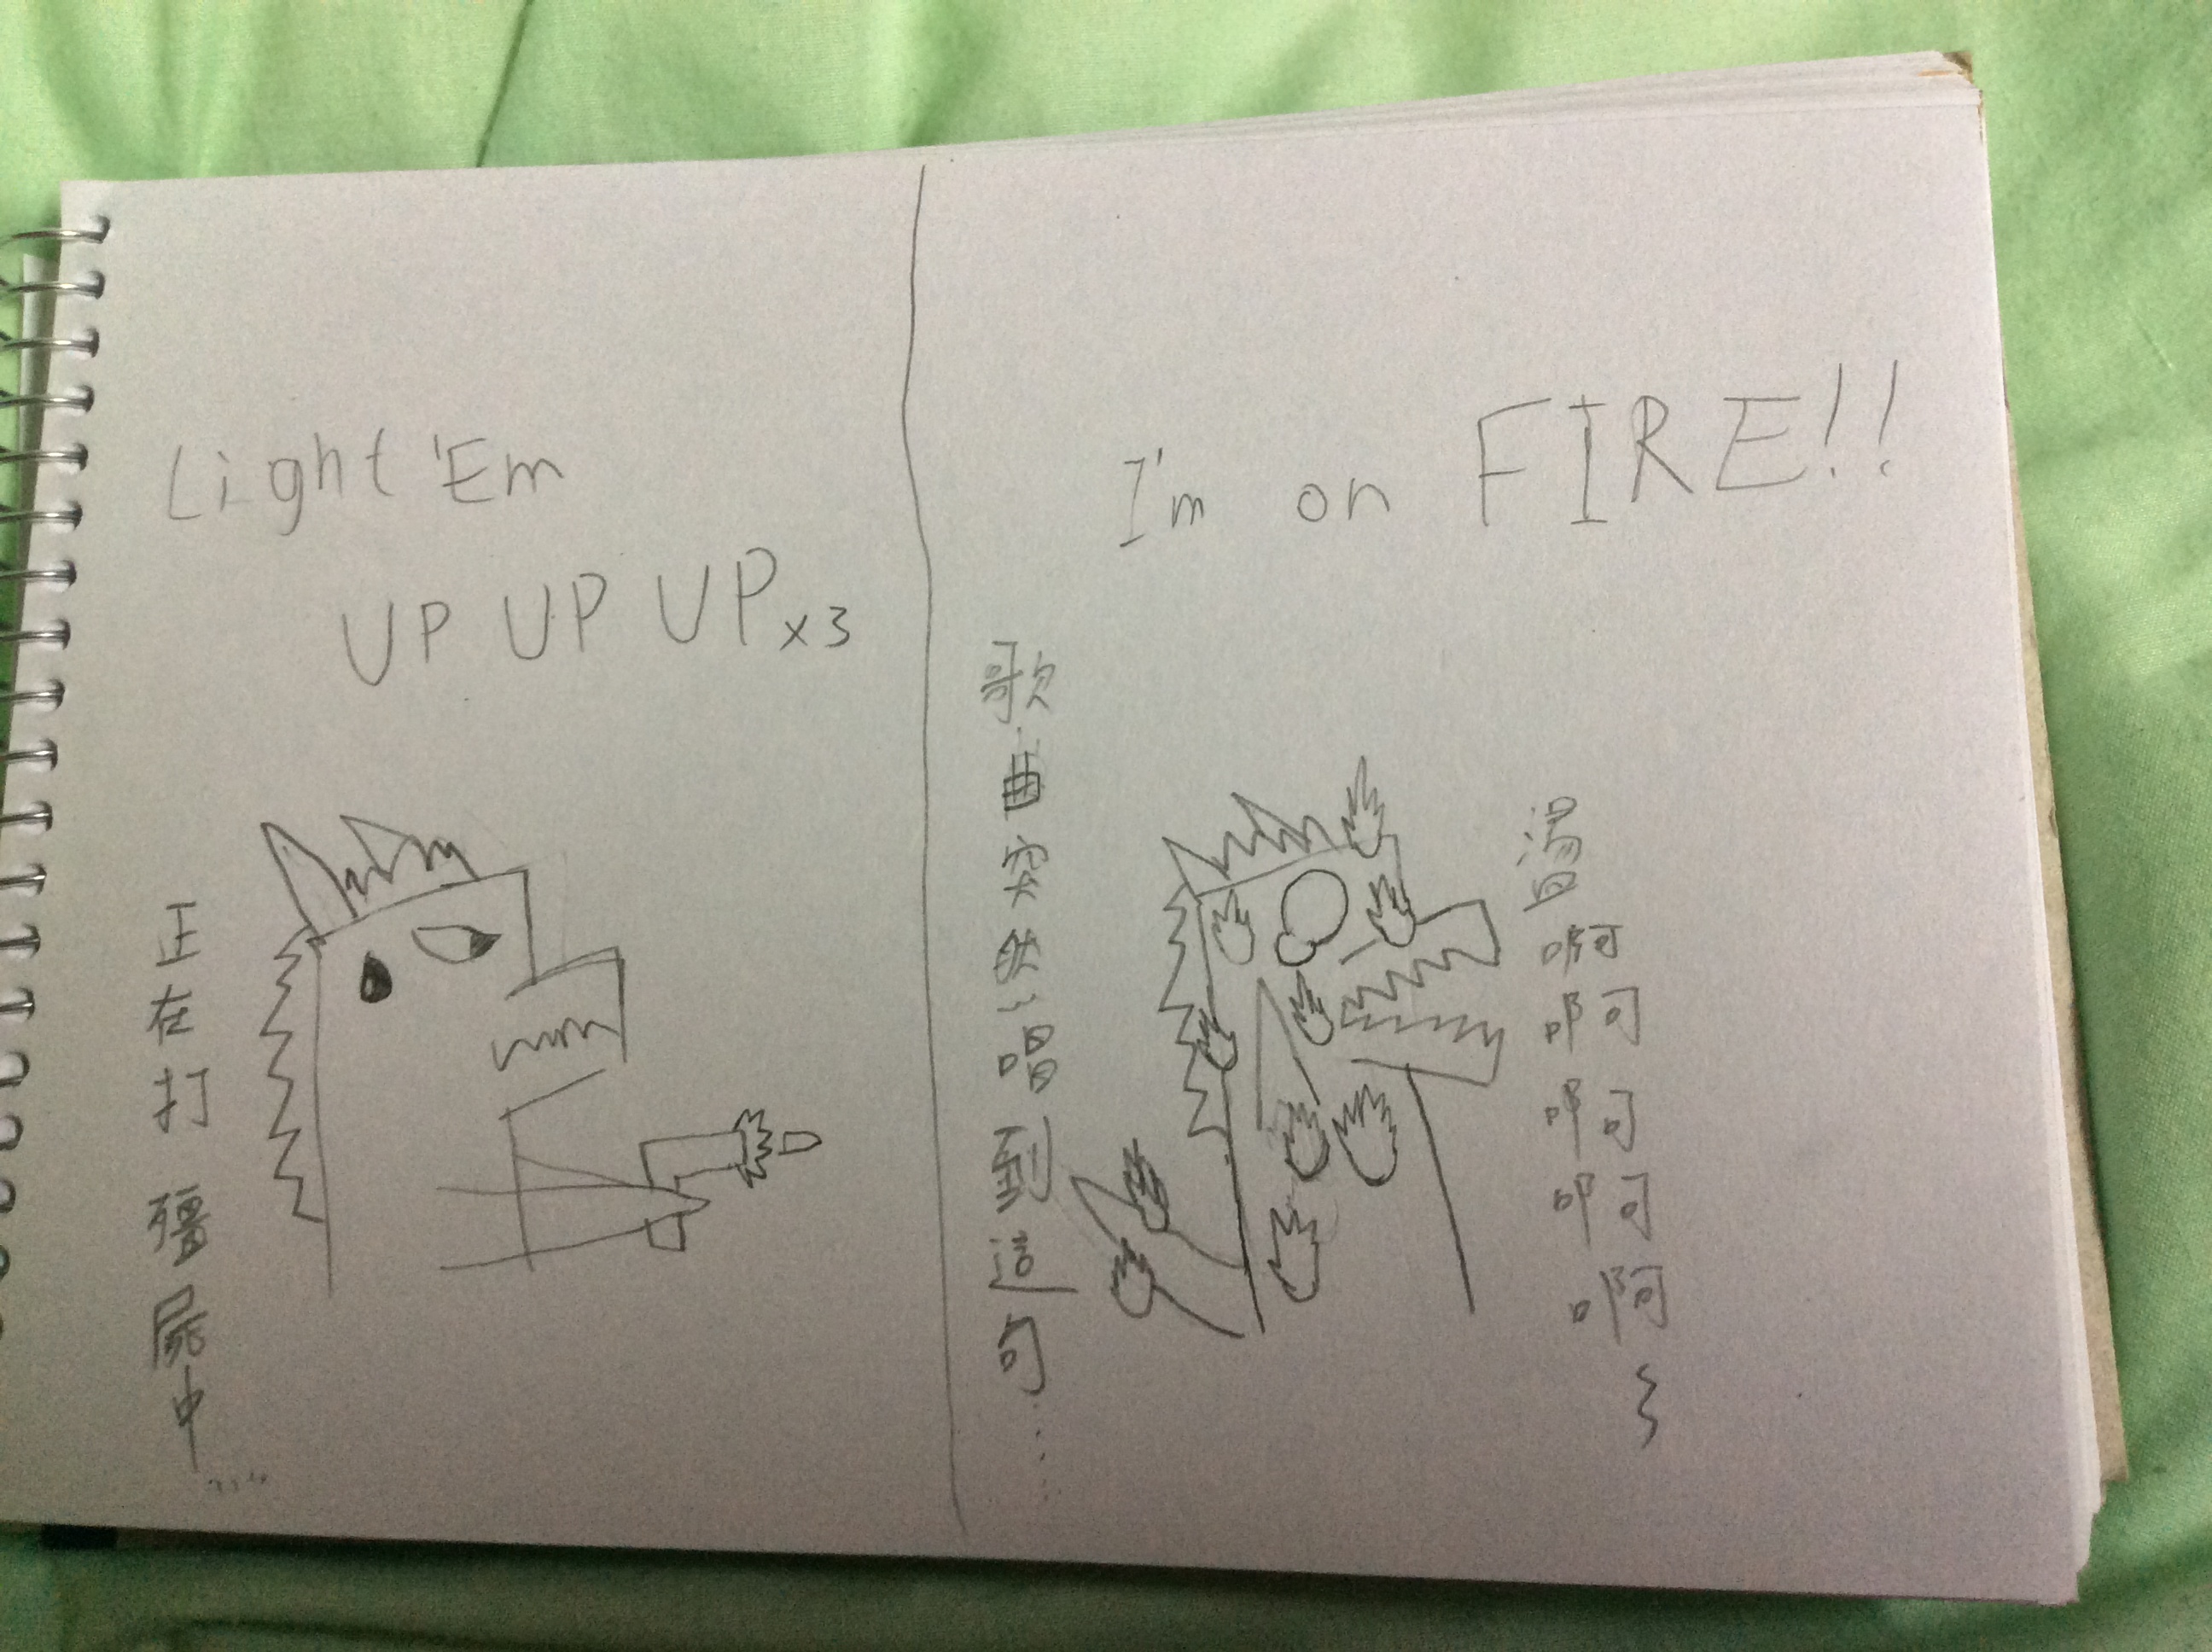 Light 'Em
UP UP UP x3
正在打殭屍中.....
I'm on FIRE!!
歌曲突然唱到這句......
啊啊啊啊啊~